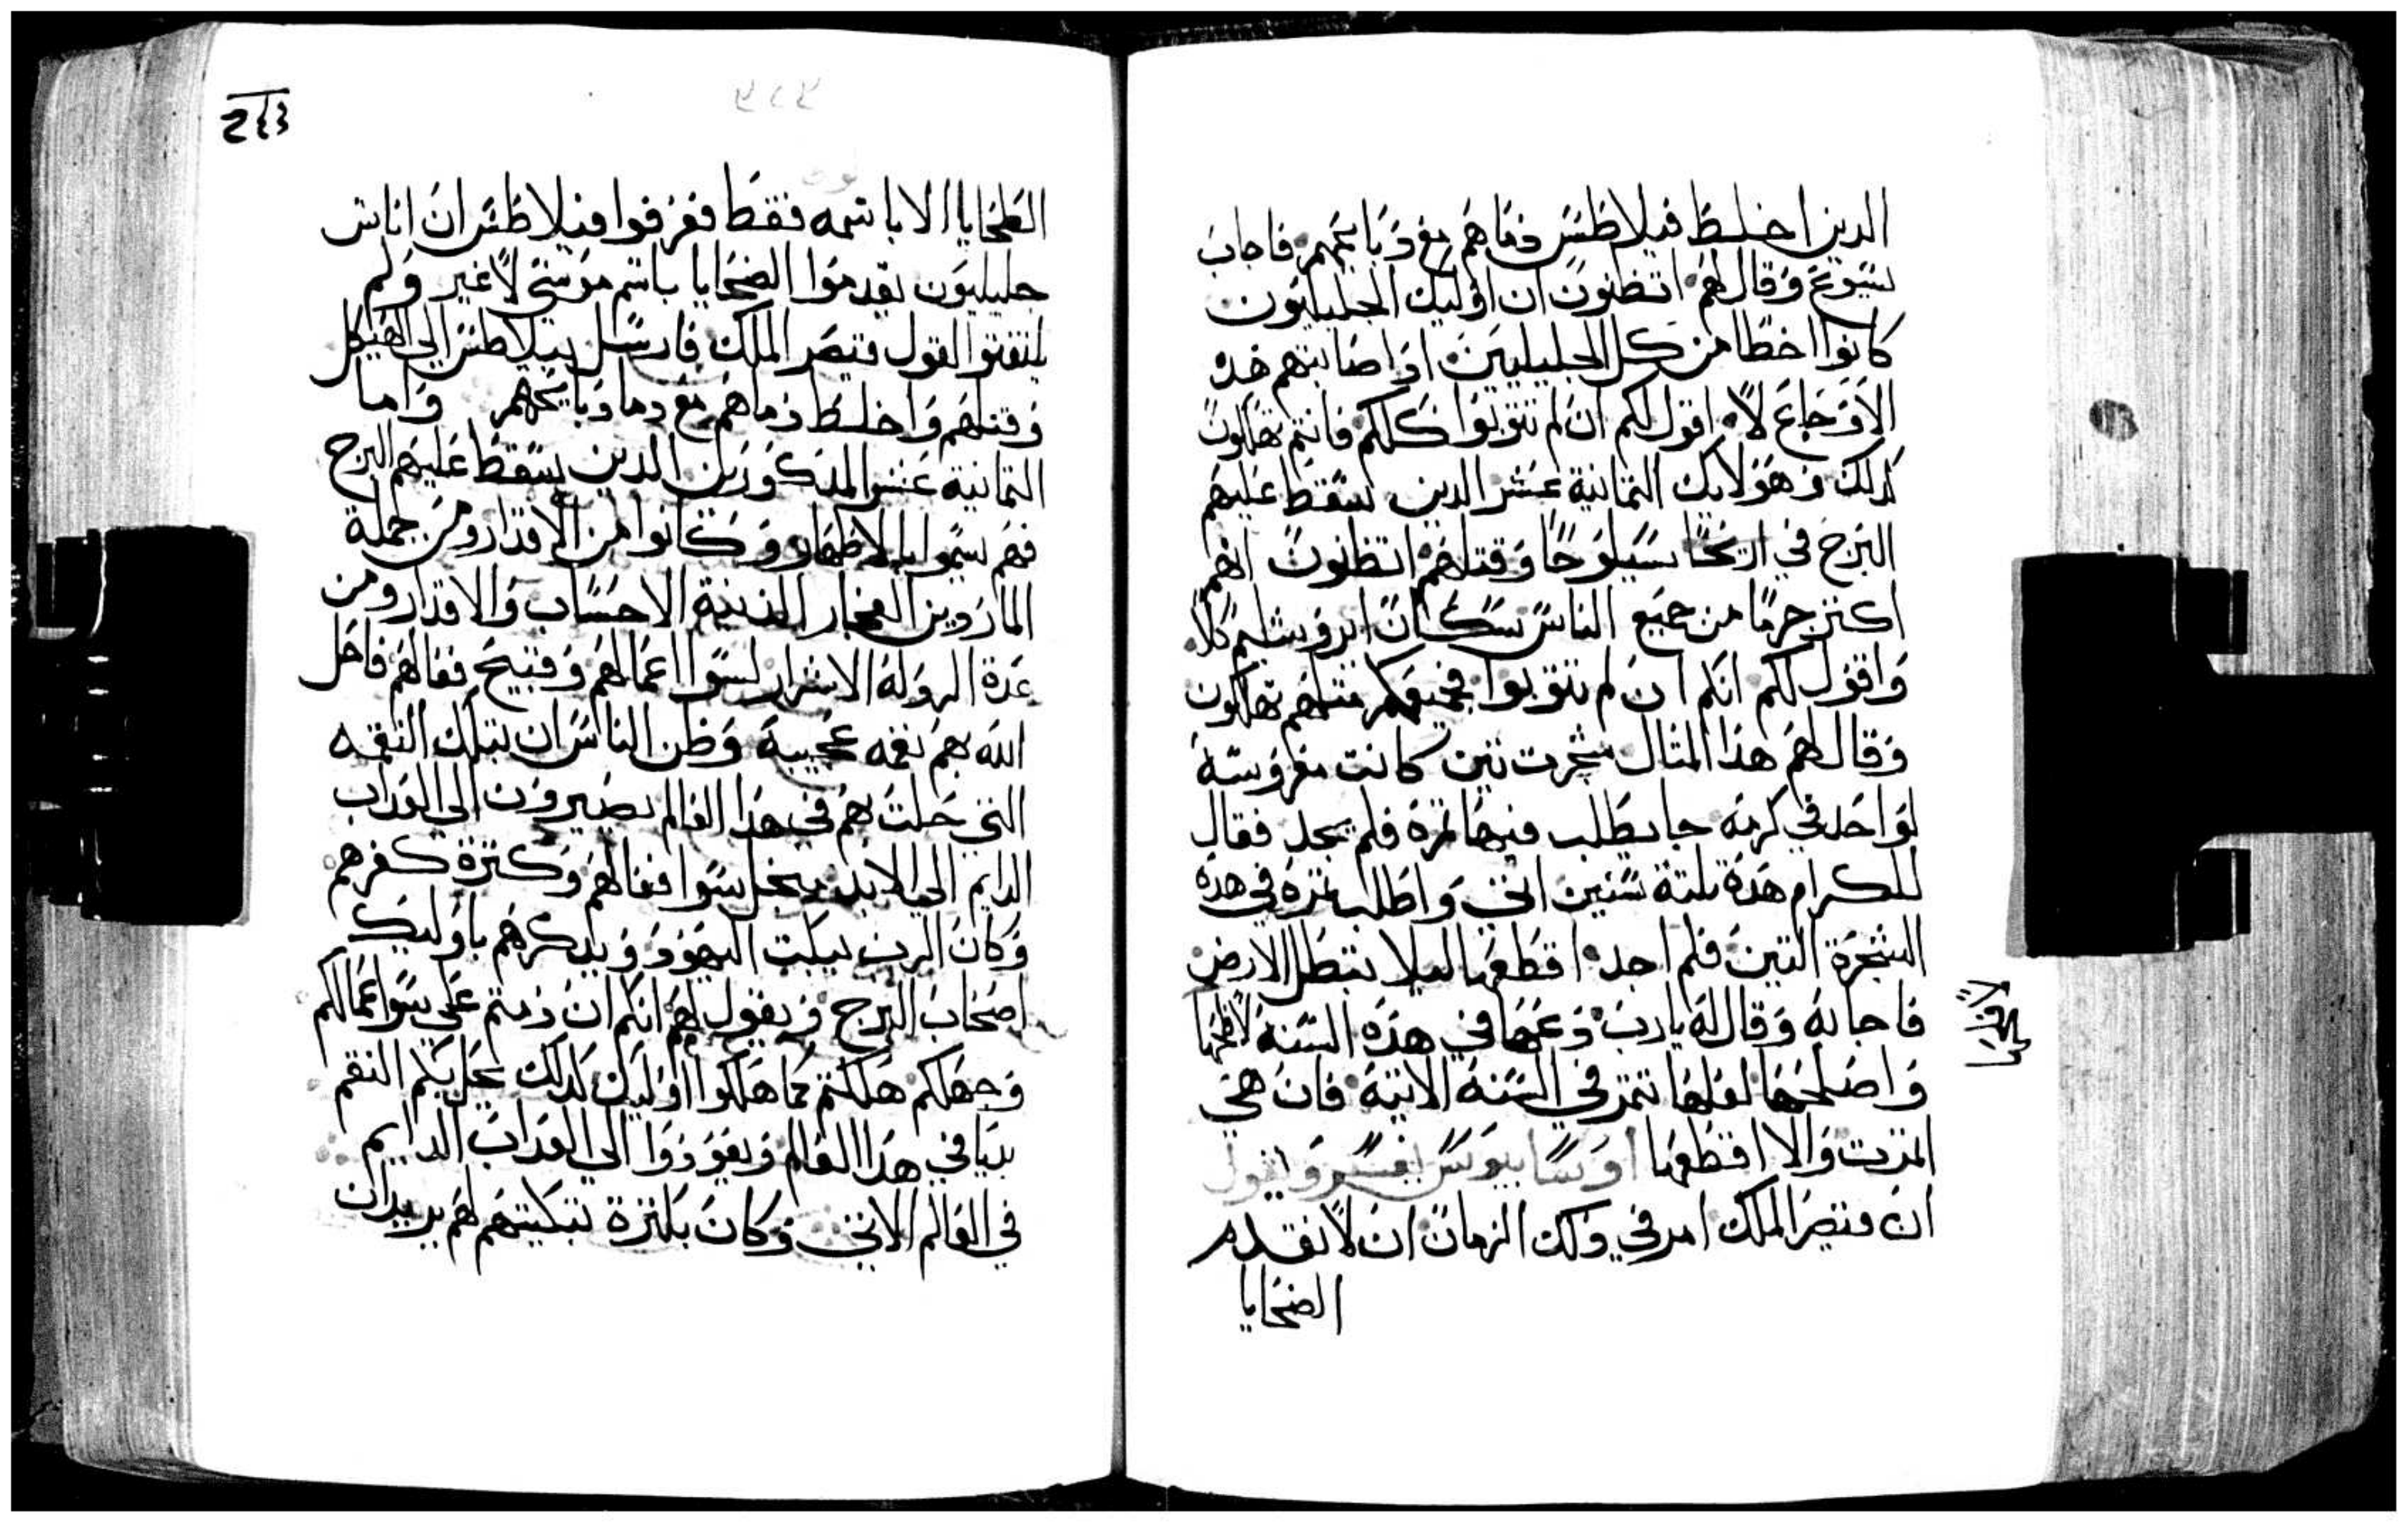 الدين اخلط فيلاطس دماهم مع دبايحهم فاجاب
يسوع وقال لهم اتظنون ان اوليك الجليليون
كانوا اخطا من كل الجليليين اذ اصابتهم هذه
الاوجاع لا اقول لكم ان لم تتوبوا كلكم فانتم تهلكون
كدلك وهولايك التمانية عشر الدين سقط عليهم
البرج في سيلوحا وقتلهم اتظنون انهم
اكتر جرما من جميع الناس سكان ايروشليم كلا
واقول لكم انكم ان لم تتوبوا فجميعكم متلهم تهلكون
وقال لهم هدا المتال شجرت تين كانت مغروسة
لواحد في كرمه جا يطلب فيها تمرة فلم يجد فقال
للكرام هده تلتة سنين اتي واطلب تمره في هده
الشجرة التين فلم اجد اقطعها ليلا تبطل الارض
فاجابه وقال له يارب دعها في هده السنة لافلحها
واصلحها لعلها تتمر في السنة الاتية فان هي
اتمرت والا اقطعها اوسابيوس يفسر ويقول
ان قيصر الملك امر في دلك الزمان ان لا تقدم
الضحايا
لافلحها
الضحايا الا باسمه فقط فعرفوا فيلاطس ان اناس
جليليون يقدموا الضحايا باسم موسي لا غير ولم
يلتفتوا لقول قيصر الملك فارسل بيلاطس الي الهيكل
وقتلهم واخلط دماهم مع دما دبايحهم واما
التمانية عشر المدكورين الدين سقط عليهم البرج
فهم سموا بالاطهار وكانوا من الاقدار ومن جملة
الماردين الفجار الاحساب والاقدار ومن
عدة الاشرار لسوا اعمالهم وقبيح فعالهم فاحل
الله بهم نقمه عجيبة وظن الناس ان بتلك النقمه
التي حلت بهم في هدا العالم يصيرون الي العداب
الدايم الي الابد سوا فعالهم وكترة كفرهم
وكان الرب يبكت اليهود ويدكرهم باوليك
اصحاب البرج ويقول لهم انكم ان دمتم علي سوا اعمالكم
وجهلكم هلكتم كما هلكوا اوليك كدلك تحل بكم النقم
في هدا العالم وتعودوا الي العداب الدايم
في العالم الاتي وكان بكترة تبكيتهم لهم يريد ان